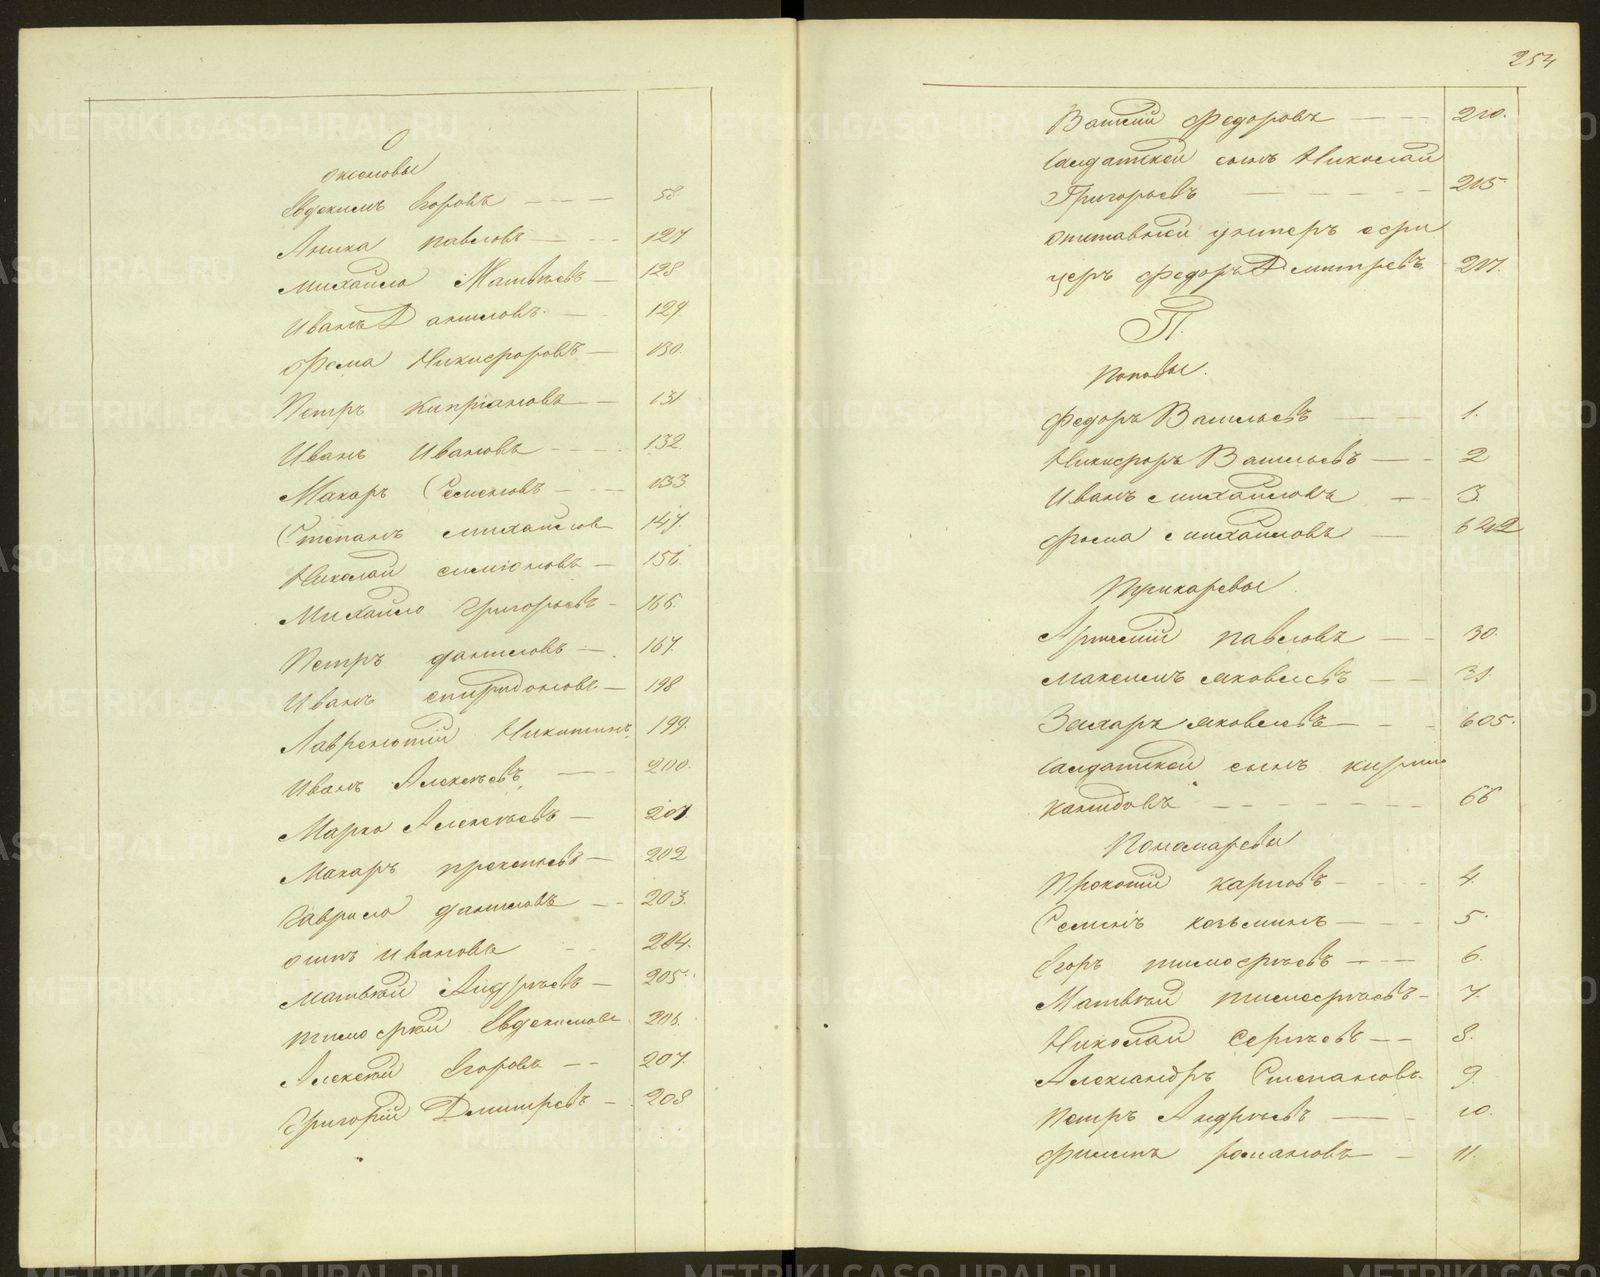 О
Ожеговы
Евдокимъ Егоровъ — — — 58
Аника Павловъ — — — 127
Михайло Матвѣевъ — 128
Иванъ Даниловъ — — 129
Фома Никифоровъ — 130.
Петръ Кипріановъ — 131
Иванъ Ивановъ — — — 132
Макаръ Семеновъ — — — 133
Степанъ Михайлов 147.
Николай Симіоновъ — 156.
Михайло Григорьевъ — 166.
Петръ Даниловъ — 167.
Иванъ Спиридоновъ — 198
Лаврентій Никитинъ 199.
Иванъ Алексѣевъ — — 200.
Марко Алексѣевъ — 201
Макаръ Прокопьевъ — 202
Гаврило Даниловъ — — 203.
Осипъ Ивановъ — — 204.
Матвѣй Андрѣевъ — 205.
Тимофѣй Евдокимовъ 206.
Алексѣй Егоровъ — — 207.
Григорій Дмитревъ — 208
254
Василій Федоровъ — — — 210.
Салдатской сынъ Николай
Григорьевъ — — — 215.
Отставной унтеръ офи
церъ Федоръ Дмитревъ 217.
П.
Поповы.
Федоръ Васильевъ — — 1.
Никифоръ Васильевъ — — 2
Иванъ Михайловъ — — 3.
Фома Михайловъ —
Пушкаревы
Арсеній Павловъ — — 30.
Максимъ Яковлевъ — — 31
Захаръ Яковлевъ — — — 605.
Салдатской сынъ Кирило
— — — 66
Пономаревы
Прокопій Карповъ — — 4.
Семенъ Козьминъ — — 5.
Егоръ Тимофѣевъ — — — 6.
Матвѣй Тимофѣевъ — 7.
Николай Сергѣевъ — — 8.
Александръ Степановъ 9.
Петръ Андрѣевъ — — 10.
Филипъ Романовъ — — 11.
METRIKI.GASO-URAL.RU